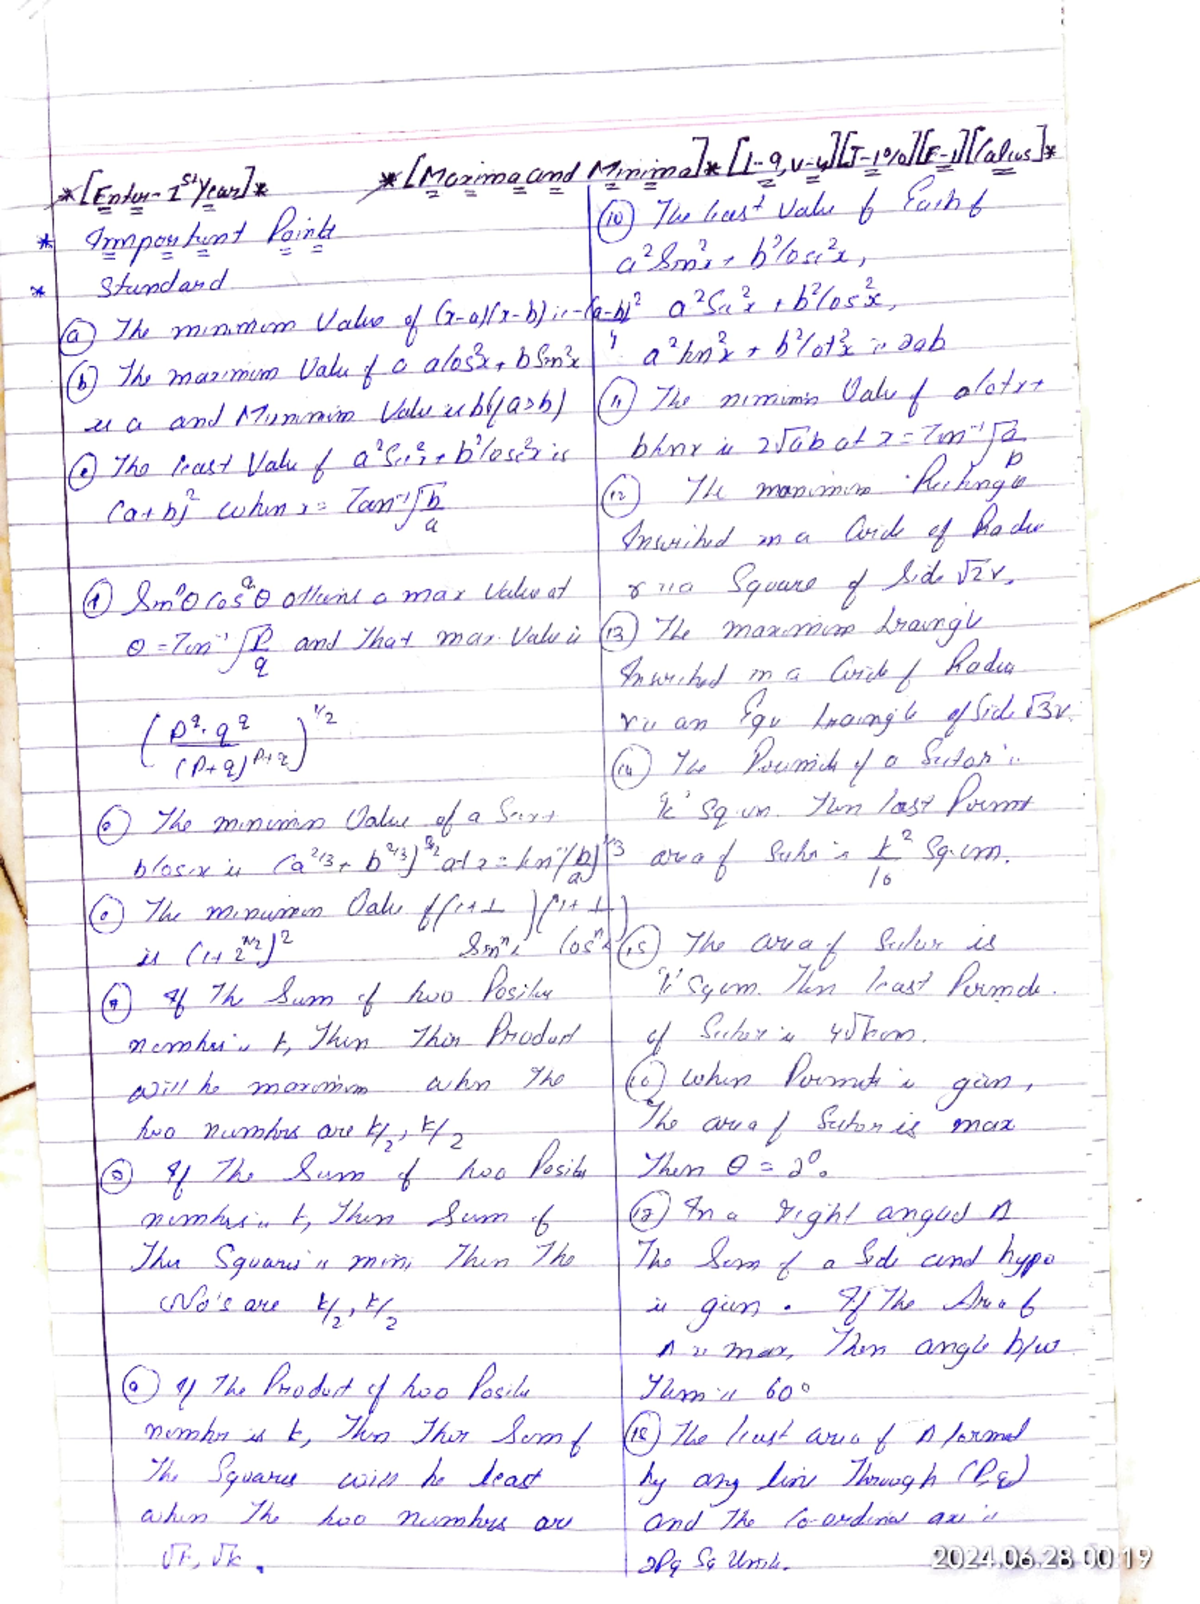 *[Enter-1st Year]* *[Maxima and Minima]* [1-9, V-4][J-1%][E-1][Calus]*
* Important Points
* Standard
(a) The minimum Value of (x-a)(x-b) is -(a-b)²/4
(b) The maximum Value of a acos²x + b Sin²x
is a and Minimum Value is b (a>b)
(c) The least Value of a²Sec²x + b²Cosec²x is
(a+b)² when x = Tan⁻¹√b/a
Sin^pθ Cos^qθ attains a max Value at
θ = Tan⁻¹√p/q and That max. Value is
(p^q . q^q / (p+q)^p+q)^1/2
The minimum Value of a Secx +
b Cosecx is (a^2/3 + b^2/3)^3/2 at x = tan⁻¹(b/a)^1/3
The minimum Value of (1+1/Sinⁿx)(1+1/Cosⁿx)
is (1+2^n/2)²
If The Sum of two Positive
number is k, Then Their Product
will be maximum when The
two numbers are k/2, k/2
If The Sum of two Positive
numbers is k, Then Sum of
Their Squares is mini Then The
No's are k/2, k/2
(9) If The Product of two Positive
number is k, Then Their Sum of
The Squares will be least
when The two numbers are
√k, √k.
(10) The least Value of Each of
a²Sin²x + b²Cosec²x,
a²Sec²x + b²Cos²x,
a²tan²x + b²Cot²x is 2ab
(11) The minimum Value of a Cotx +
btanx is 2√ab at x = Tan⁻¹√a/b
(12) The maximum Rectangle
Inscribed in a Circle of Radius
r is a Square of Side √2r.
(13) The maximum triangle
Inscribed in a Circle of Radius
r is an Equ triangle of Side √3r.
(14) The Perimeter of a Sector is
'k' Sq.cm. Then last Permt
area of Sector is k²/16 Sq.cm.
(15) The area of Sector is
'k' Sqcm. Then least Permete.
of Sector is 4√k cm.
(16) When Permeter is given,
The area of Sector is max
Then θ = 2°.
(17) In a right angled Δ
The Sum of a Side and hypo
is given. If The Area of
Δ is max, Then angle b/w
Them is 60°
(18) The least area of Δ formed
by any line Through (P,q)
and The Co-ordinat axi is
2Pq Sq Units.
2024.06.28 00:19